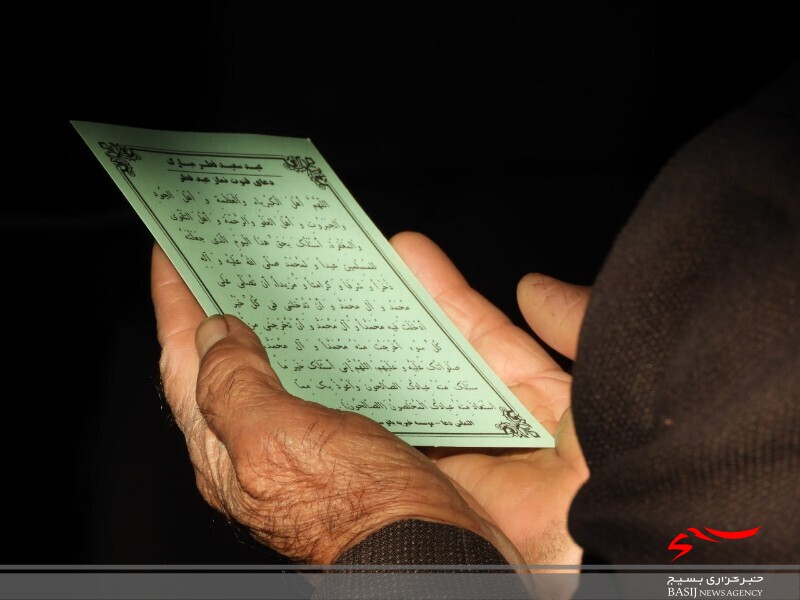 عید سعید فطر مبارک
دعای قنوت نماز عید فطر
اَللّهُمَّ اَهْلَ الْکِبْرِیاءِ وَالْعَظَمَةِ وَ اَهْلَ الْجُودِ
وَالْجَبَرُوتِ وَ اَهْلَ الْعَفْوِ وَالرَّحْمَةِ وَ اَهْلَ التَّقْوی
وَالْمَغْفِرَةِ، اَسْئَلُکَ بِحَقِّ هذَا الْیَوْمِ الَّذی جَعَلْتَهُ
لِلْمُسْلِمینَ عیداً وَ لِمُحَمَّدٍ صَلَّی اللهُ عَلَیْهِ وَ آلِهِ
ذُخْراً وَ شَرَفاً وَ کَرامَتاً وَ مَزیداً، اَنْ تُصَلِّیَ عَلی
مُحَمَّدٍ وَ آلِ مُحَمَّدٍ وَ اَنْ تُدْخِلَنی فی کُلِّ خَیْرٍ
اَدْخَلْتَ فیهِ مُحَمَّداً وَ آلَ مُحَمَّدٍ وَ اَنْ تُخْرِجَنی مِنْ
کُلِّ سُوءٍ اَخْرَجْتَ مِنْهُ مُحَمَّداً وَ آلَ مُحَمَّدٍ
صَلَواتُکَ عَلَیْهِ وَ عَلَیْهِم، اَللّهُمَّ اِنّی اَسْئَلُکَ خَیْرَ ما
سَئَلَکَ مِنْهُ عِبادُکَ الصّالِحُونَ وَ اَعُوذُ بِکَ مِمَّا
اسْتَعاذَ مِنْهُ عِبادُکَ الْمُخْلِصُونَ (الصّالِحُونَ)
التماس دعا - موسسه خیریه
خبرگزاری بسیج
BASIJ NEWS AGENCY